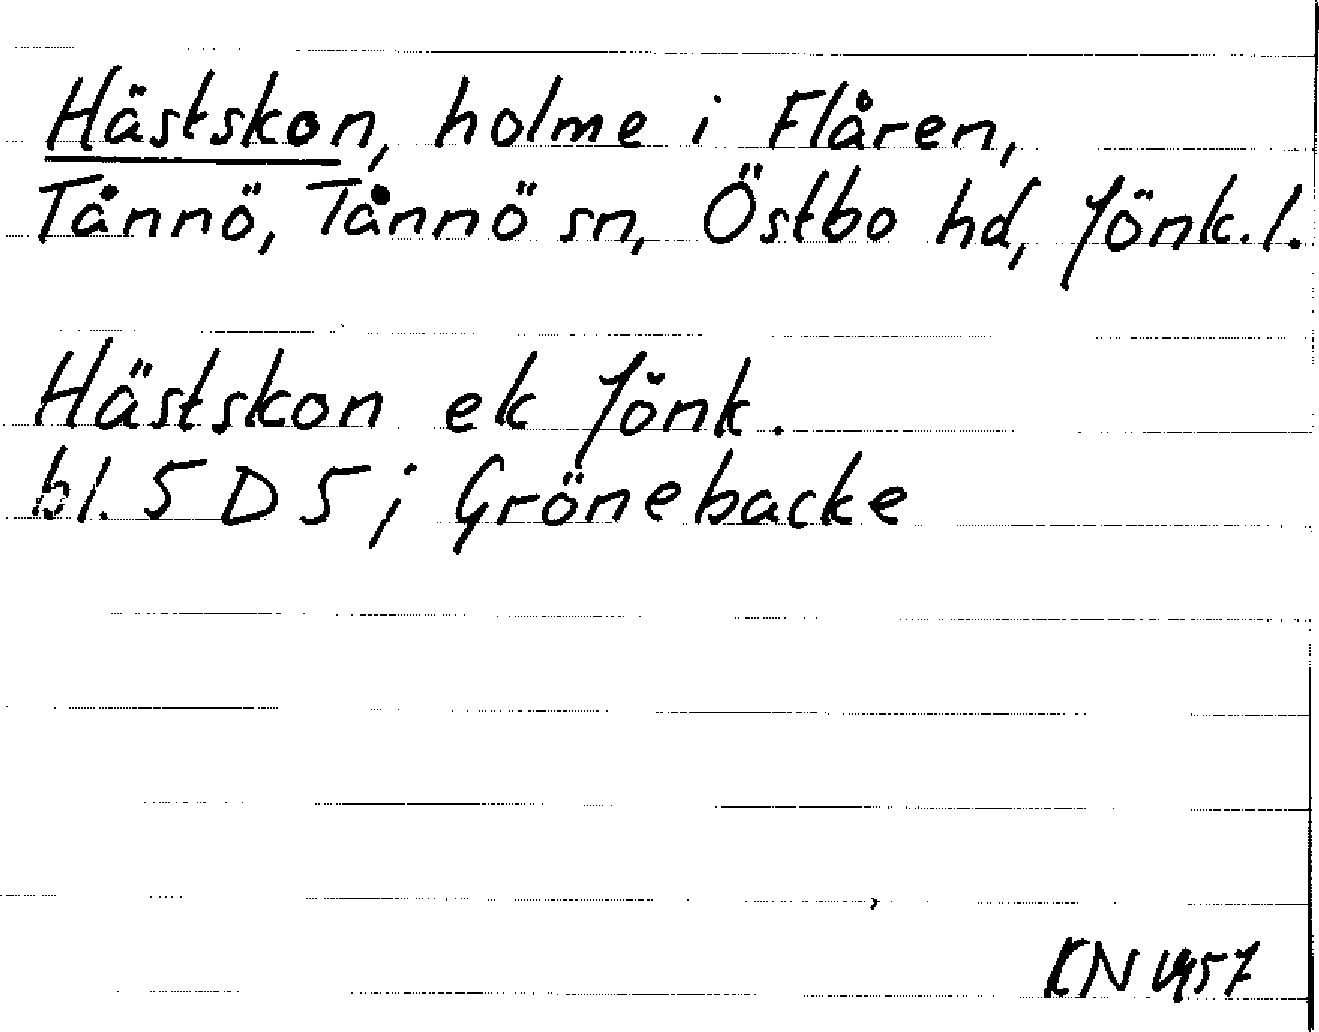 Hästskon, holme i Flåren,
Tånnö, Tånnö sn, Östbo hd, Jönk.l.
Hästskon ek Jönk.
bl. 5 D 5 j Grönebacke
KN 1957